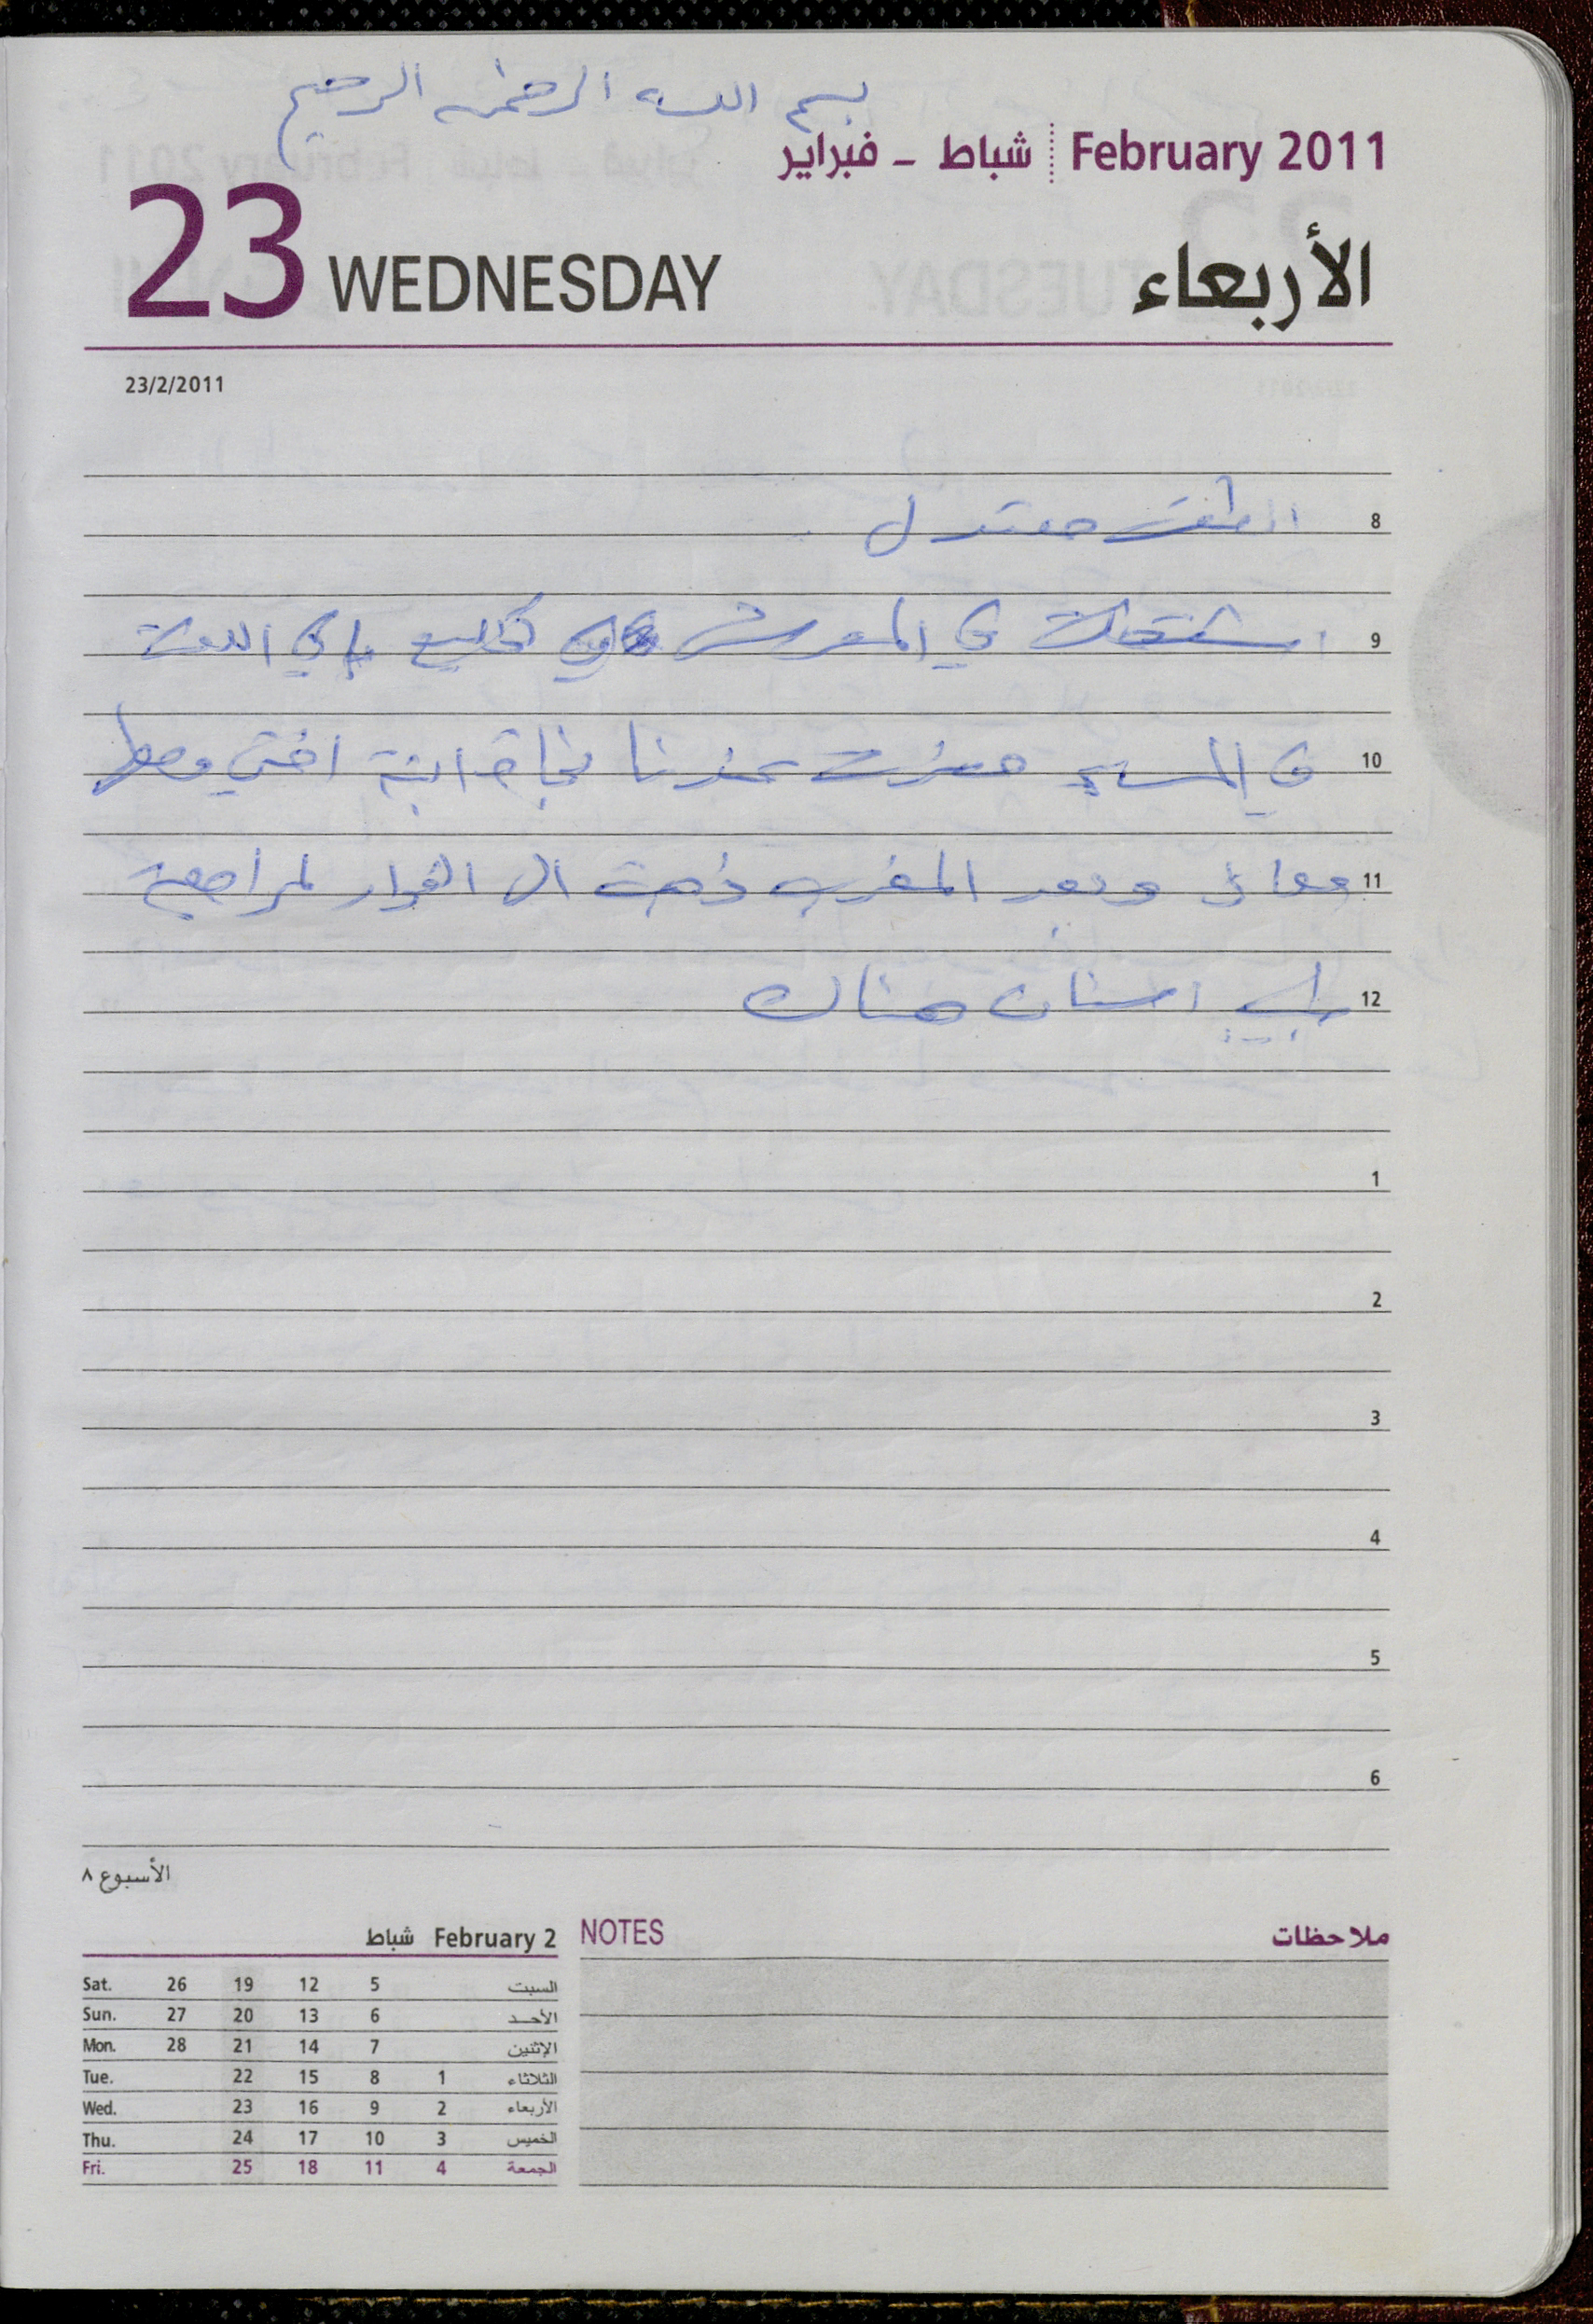 بسم الله الرحمن الرحيم
February 2011 شباط - فبراير
23 WEDNESDAY الأربعاء
23/2/2011
8 الطقس معتدل
9 اشتغلت في المعرش في باقي اللوحة
10 في المساء حضرت عندنا نجاة ابنة اختي ومعها
11 معاذ وبعد المغرب ذهبت الى الفوار لمراجعة
12 طبيب اسنان هناك
1
2
3
4
5
6
الأسبوع ٨
February 2 شباط
Sat. 26 19 12 5 السبت
Sun. 27 20 13 6 الأحد
Mon. 28 21 14 7 الإثنين
Tue. 22 15 8 1 الثلاثاء
Wed. 23 16 9 2 الأربعاء
Thu. 24 17 10 3 الخميس
Fri. 25 18 11 4 الجمعة
NOTES ملاحظات